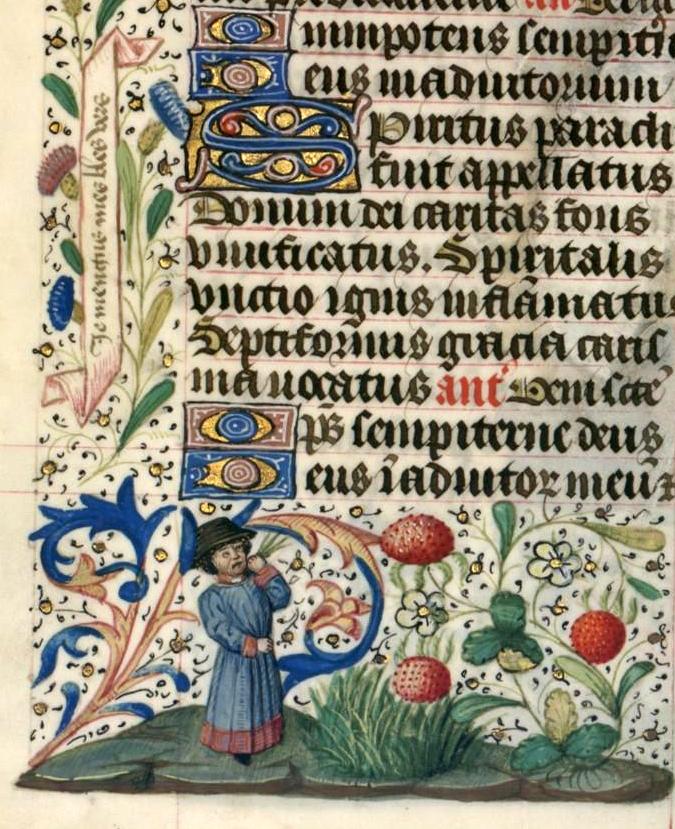 ant
omnipotens sempiter
eus in adiutorium
Spiritus paracli
fuit appellatus
Donum dei caritas fons
viuificatus. Spiritalis
vnctio ignis inflāmatus
Septiformis gracia caris
ma uocatus ant Veni scē
ps̄ sempiterne deus
eus ī adiutor meū
Je
mes